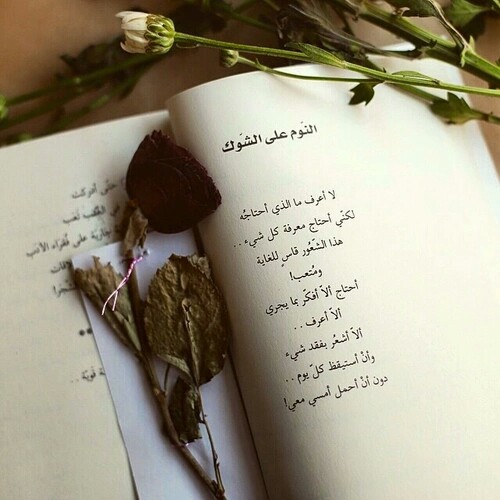 النّوم على الشّوك
لا أعرف ما الذي أحتاجُه
لكنّي أحتاج معرفة كل شيء..
هذا الشّعُور قاسٍ للغاية
ومُتعب!
أحتاج ألاّ أفكّر بما يجري
ألاّ أعرف..
ألاّ أشعُر بفقد شيء
وأنْ أستيقظ كلّ يوم..
دون أنْ أحمل أمسي معي!
حتّى أدركت
القلب تعب
على فُقراء الأدب
قويّة..